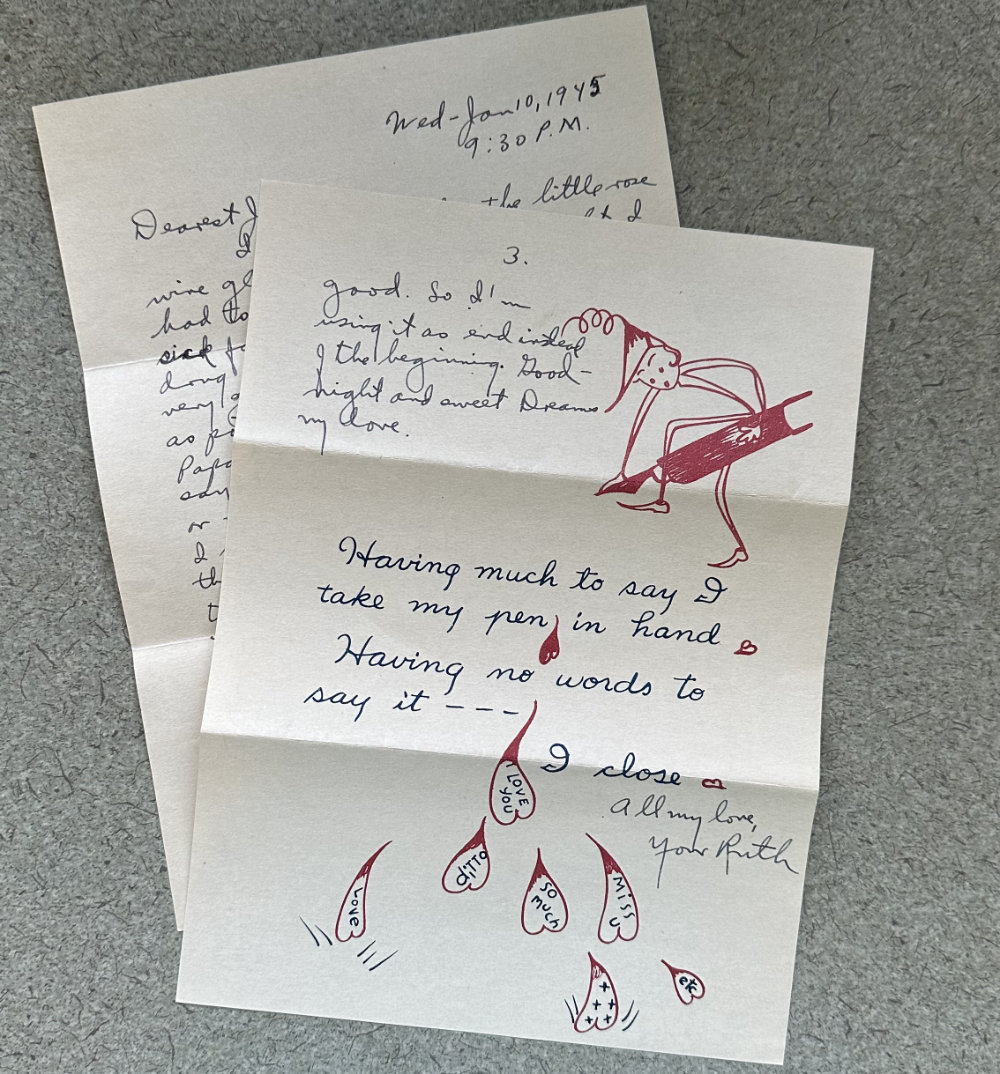 Wed-Jan 10, 1945
9:30 P.M.
Dearest J
the little rose
I
wire gl
had to
sick fo
doug
very
as po
Papa
say
or
I
th
t
3.
good. So I'm
using it as end instead
of the beginning. Good-
night and sweet Dreams
my love.
Having much to say I
take my pen, in hand
Having no words to
say it ---
I close
All my love,
Your Ruth
I LOVE YOU
diTTO
LOVE
SO MUCH
MISS U
etc